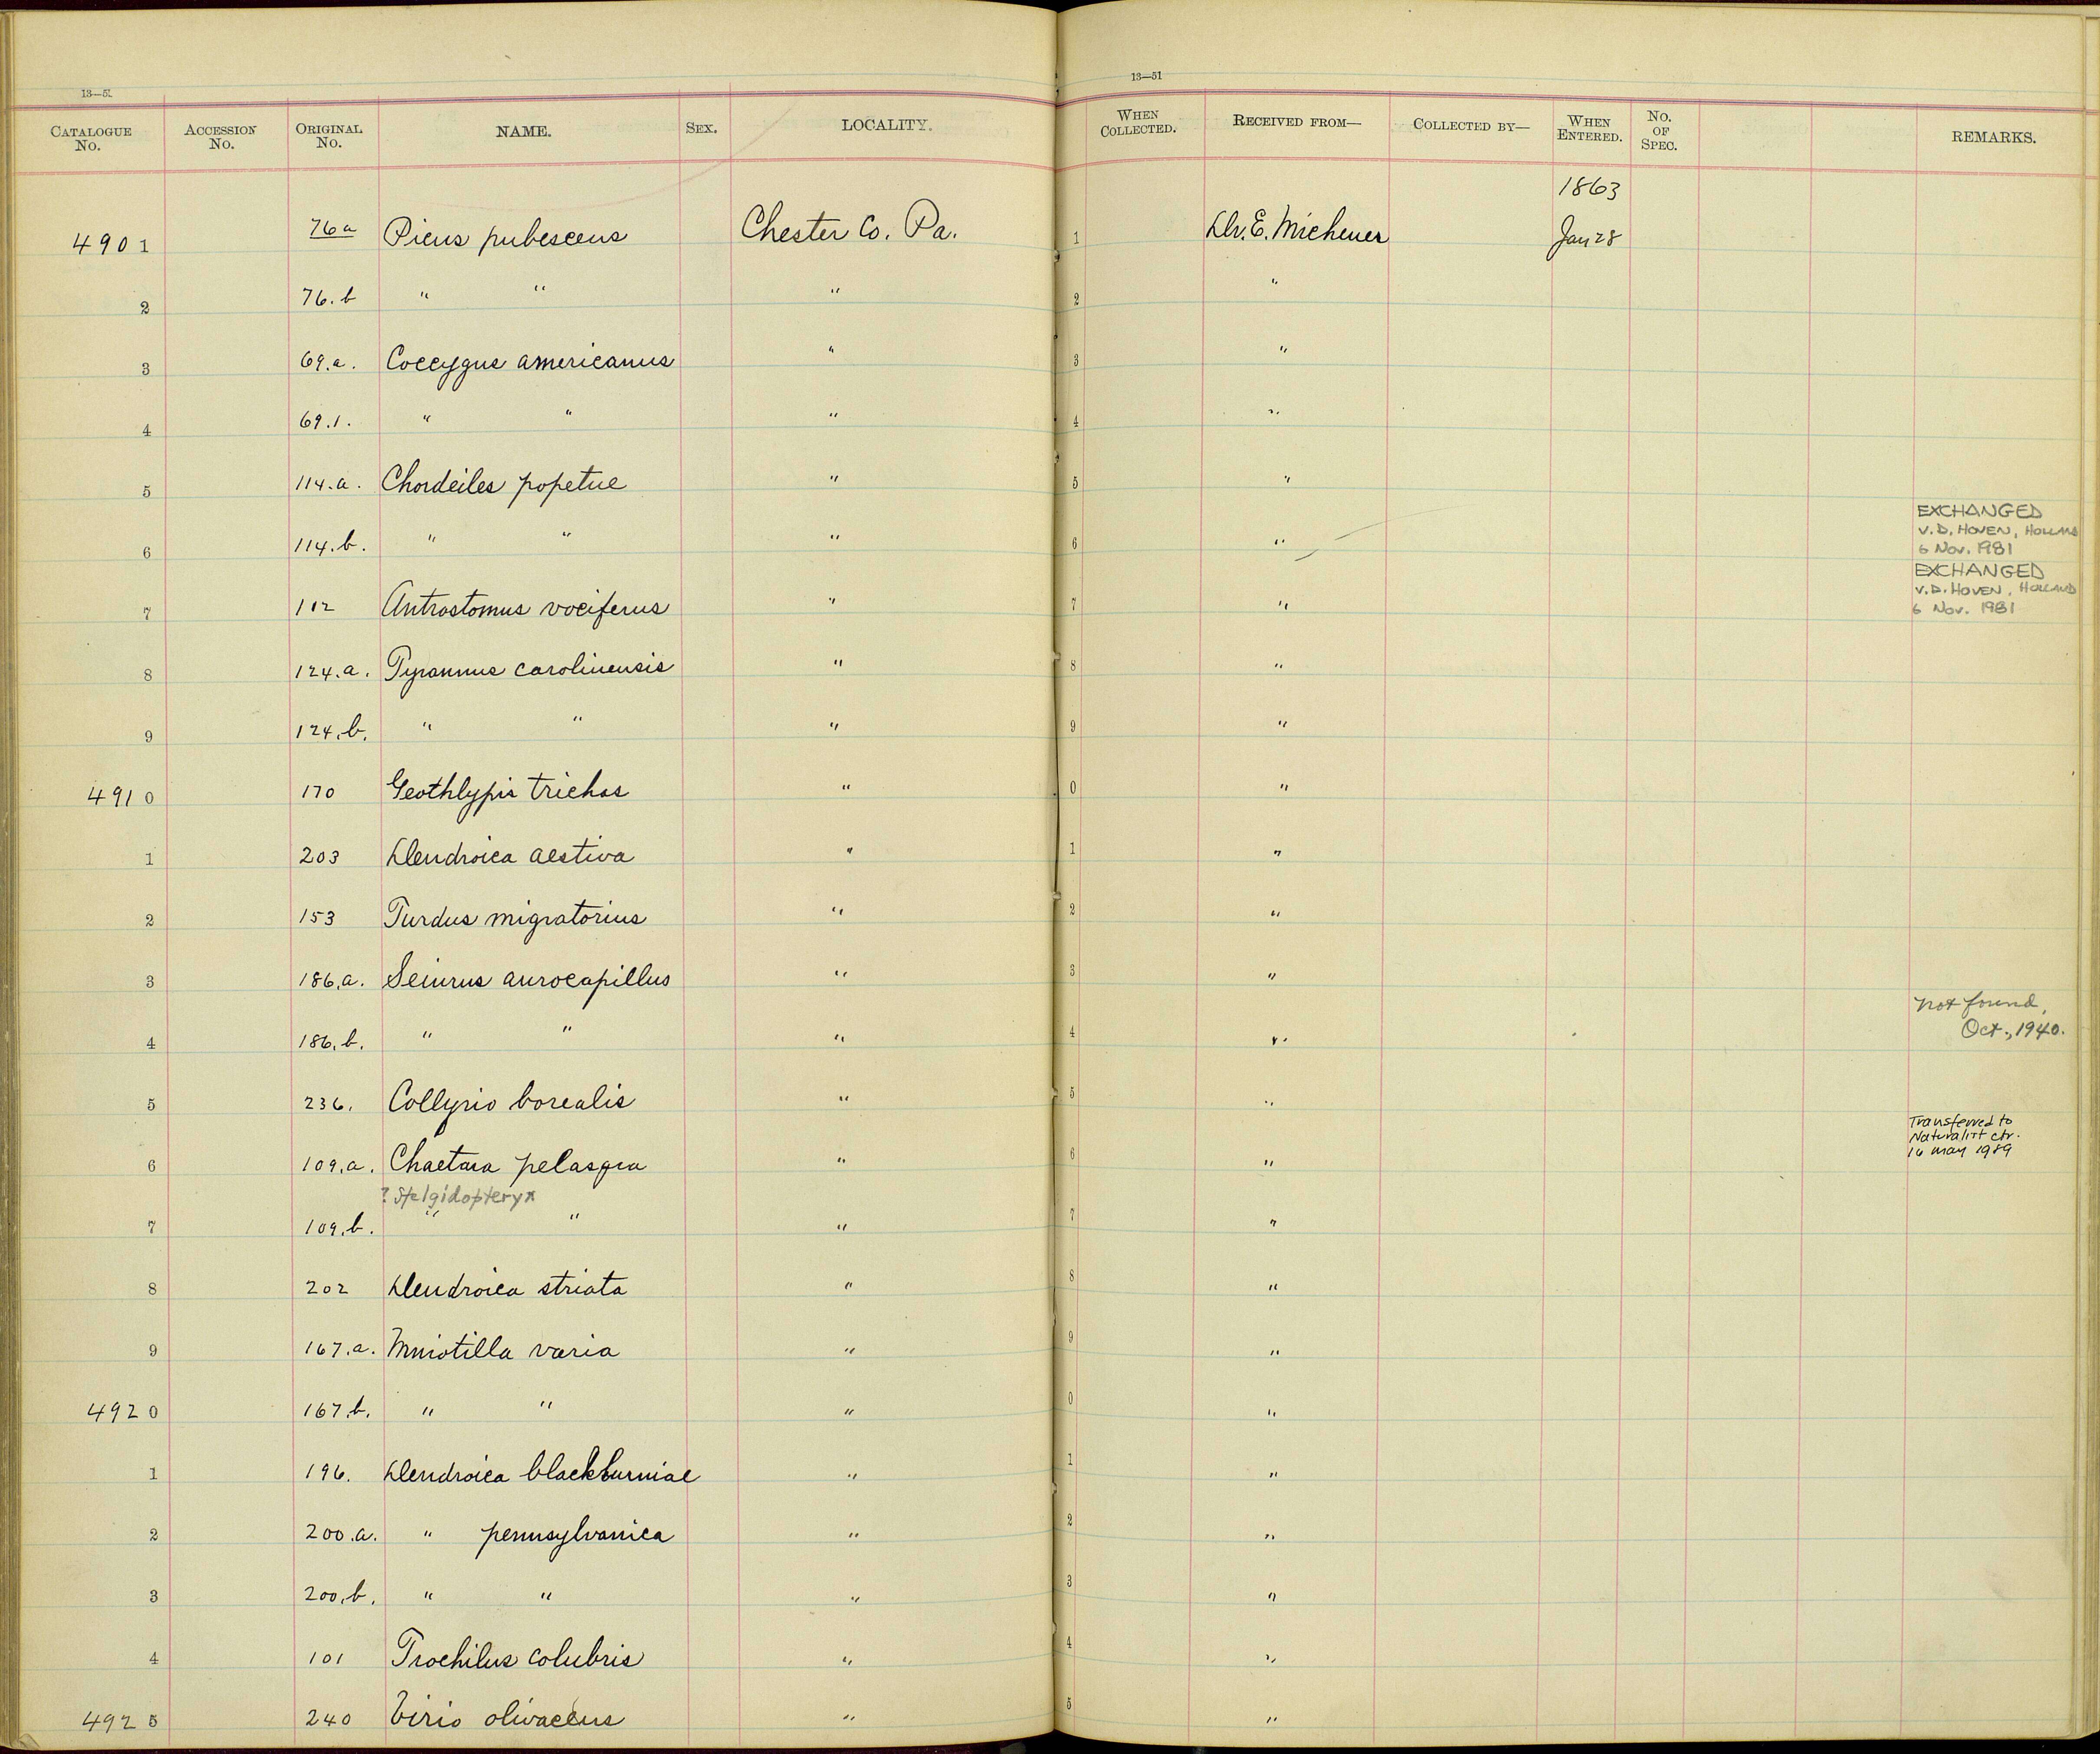 13—51
13—51
CATALOGUE No. ACCESSION No. ORIGINAL No. NAME. SEX. LOCALITY. WHEN COLLECTED. RECEIVED FROM— COLLECTED BY— WHEN ENTERED. No. OF SPEC. REMARKS.
1863
4901 76a Picus pubescens Chester Co. Pa. 1 Dr. E. Michener Jan 28
2 76.b " " " 2 "
3 69.a. Coccygus americanus " 3 "
4 69.1. " " " 4 "
5 114.a. Chordeiles popetue " 5 "
6 114.b. " " " 6 " EXCHANGED V.D. HOVEN, HOLLAND 6 Nov. 1981
7 112 Antrostomus vociferus " 7 " EXCHANGED V.D. HOVEN, HOLLAND 6 Nov. 1981
8 124.a. Tyrannus carolinensis " 8 "
9 124.b. " " " 9 "
4910 170 Geothlypis trichas " 0 "
1 203 Dendroica aestiva " 1 "
2 153 Turdus migratorius " 2 "
3 186.a. Seiurus aurocapillus " 3 "
4 186.b. " " " 4 " not found, Oct., 1940.
5 236. Collyrio borealis " 5 "
6 109.a. Chaetura pelasgia " 6 " Transferred to Naturalist ctr. 16 May 1989
? Stelgidopteryx
7 109.b. " " " 7 "
8 202 Dendroica striata " 8 "
9 167.a. Mniotilla varia " 9 "
4920 167.b. " " " 0 "
1 196. Dendroica blackburniae " 1 "
2 200.a. " pennsylvanica " 2 "
3 200.b. " " " 3 "
4 101 Trochilus colubris " 4 "
4925 240 Virio olivaceus " 5 "